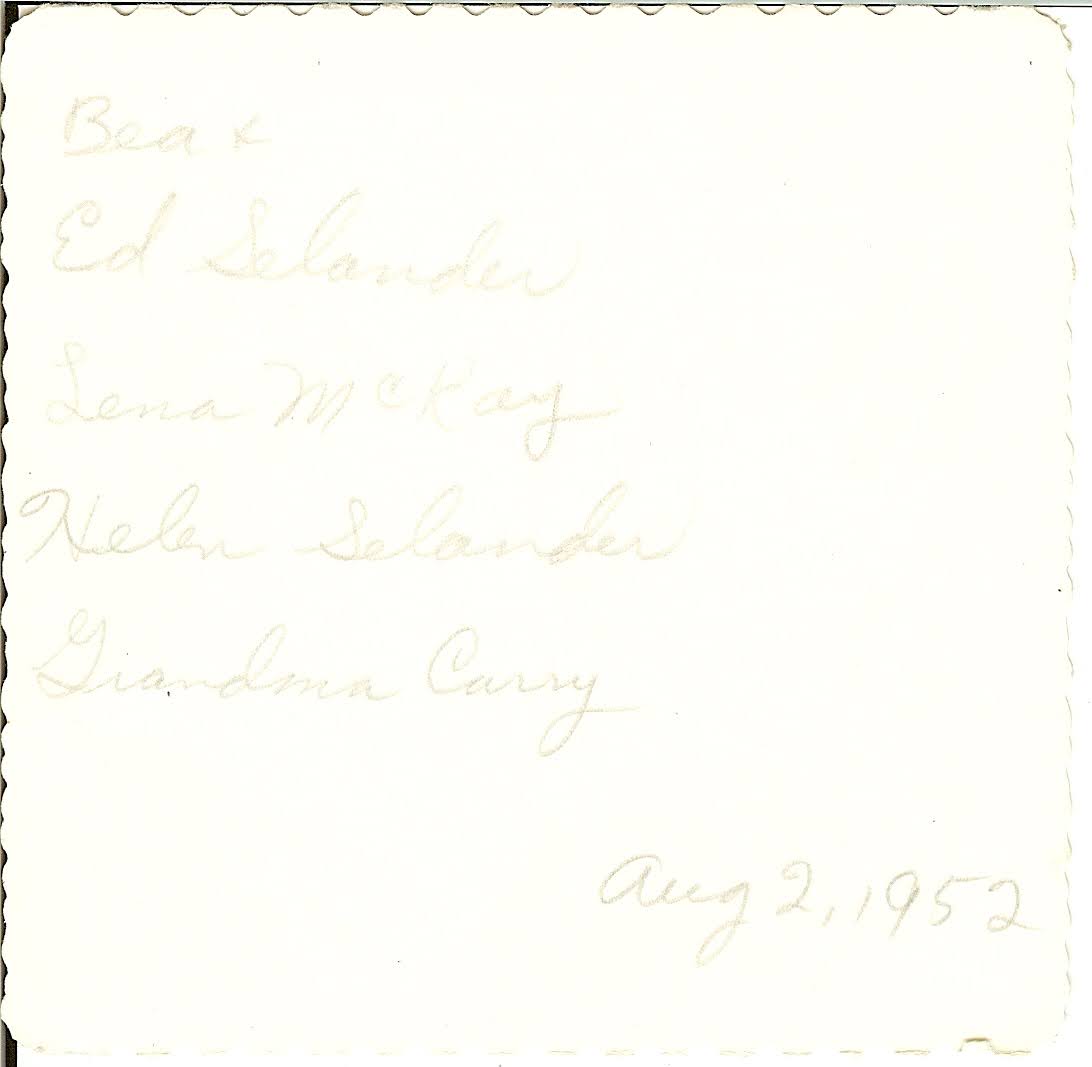 Bea &
Ed Selander
Lena McKay
Helen Selander
Grandma Carry
Aug 2, 1952